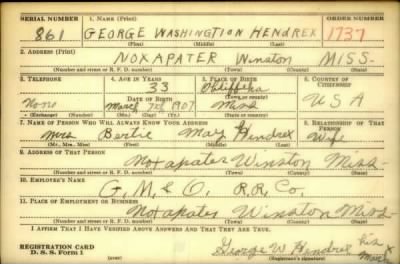 SERIAL NUMBER 1. NAME (Print) ORDER NUMBER
861 GEORGE WASHINGTION HENDREX 1737
(First) (Middle) (Last)
2. ADDRESS (Print)
NOXAPATER Winston MISS-
(Number and street or R. F. D. number) (Town) (County) (State)
3. TELEPHONE 4. AGE IN YEARS 5. PLACE OF BIRTH 6. COUNTRY OF CITIZENSHIP
33
None DATE OF BIRTH Miss U S A
March 7th 1907
(Exchange) (Number) (Mo.) (Day) (Yr.) (State or country)
7. NAME OF PERSON WHO WILL ALWAYS KNOW YOUR ADDRESS 8. RELATIONSHIP OF THAT PERSON
Mrs Bertie May Hendrex Wife
(Mr., Mrs., Miss) (First) (Middle) (Last)
9. ADDRESS OF THAT PERSON
Noxapater Winston Miss-
(Number and street or R. F. D. number) (Town) (County) (State)
10. EMPLOYER'S NAME
G. M. & O. R.R. Co.
11. PLACE OF EMPLOYMENT OR BUSINESS
Noxapater Winston Miss-
(Number and street or R. F. D. number) (Town) (County) (State)
I AFFIRM THAT I HAVE VERIFIED ABOVE ANSWERS AND THAT THEY ARE TRUE.
REGISTRATION CARD
D. S. S. Form 1 George W Hendrex his X Mark
(Registrant's signature)